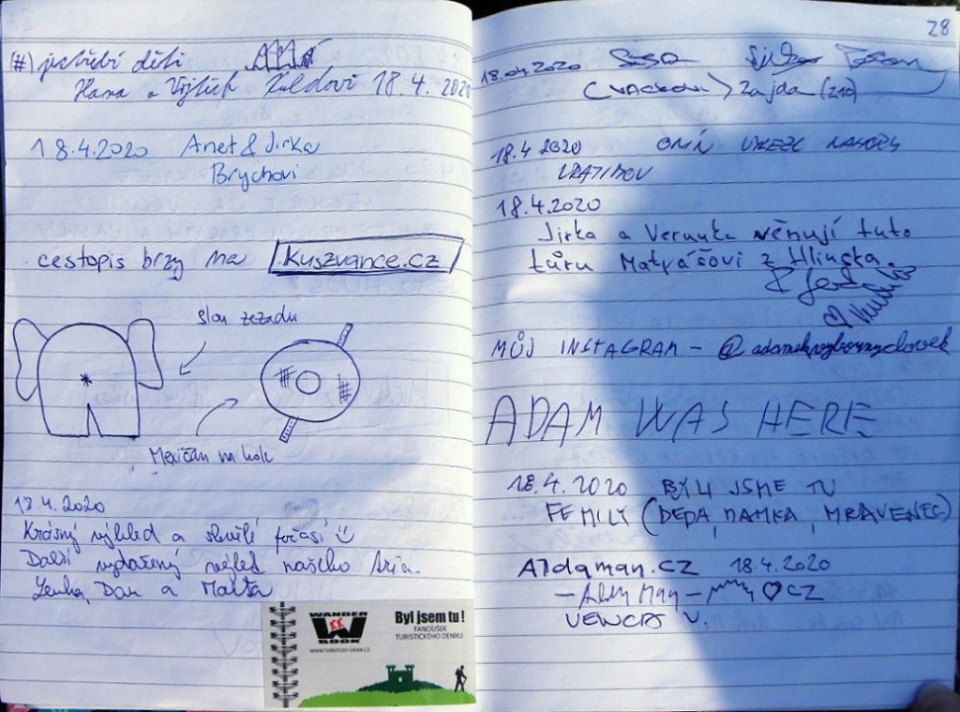 (#) jestřebí děti
Hana a Vojtěch Kuldovi 18.4.2020
18.4.2020 Anet & Jirka
Brychovi
cestopis brzy na kuszvance.cz
slon zezadu
Mexičan na kole
18.4.2020
Krásný výhled a skvělé počasí
Další vydařený výlet našeho tria.
Lenka, Dan a Maita
WANDER
BOOK
WWW.TURISTICKY-DENIK.CZ
Byl jsem tu!
FANOUŠEK
TURISTICKÉHO DENÍKU
28
18.04.2020
(VACKOVI) Zajda (210)
18.4 2020
VRATIMOV
18.4.2020
Jirka a Verunka věnují tuto
túru Matyášovi z Hlinska.
MŮJ INSTAGRAM - @adamekvybornyclovek
ADAM WAS HERE
18.4.2020 BYLI JSME TU
FEMILY (DEPA, MAMKA, MRAVENEC)
A7daman.cz 18.4.2020
CZ
V.